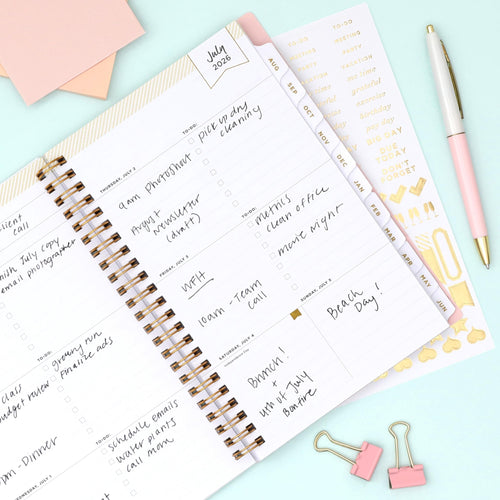 July
2026
TO-DO:
pick up dry
cleaning
THURSDAY, JULY 2
9am Photoshoot
August
Newsletter
(draft)
TO-DO:
metrics
clean office
movie night
FRIDAY, JULY 3
WFH
10am - Team
call
SATURDAY, JULY 4
Independence Day
Brunch!
+
4th of July
Bonfire
SUNDAY, JULY 5
Beach
Day!
client
call
nish July copy
email photographer
class
budget review
TO-DO:
grocery run
finalize ads
pm - Dinner
TO-DO:
schedule emails
water plants
call mom
WEDNESDAY, JULY 1
AUG
SEP
OCT
NOV
DEC
JAN
FEB
MAR
APR
MAY
JUN
TO-DO
MEETING
PARTY
VACATION
me time
grateful
exercise
birthday
pay day
BIG DAY
DUE
TODAY
DON'T
FORGET